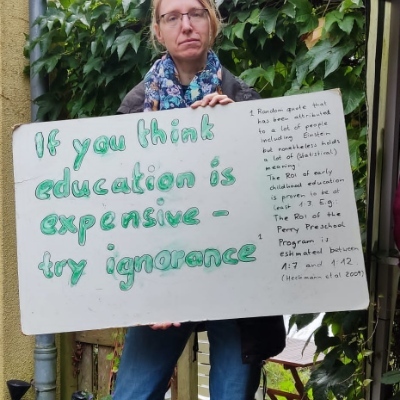 If you think
education is
expensive -
try ignorance ¹
¹ Random quote that
has been attributed
to a lot of people
including Einstein
but nonetheless holds
a lot of (statistical)
meaning
The RoI of early
childhood education
is proven to be at
least 1:3. E.g.:
The RoI of the
Perry Preschool
Program is
estimated between
1:7 and 1:12
(Heckmann et al 2009)